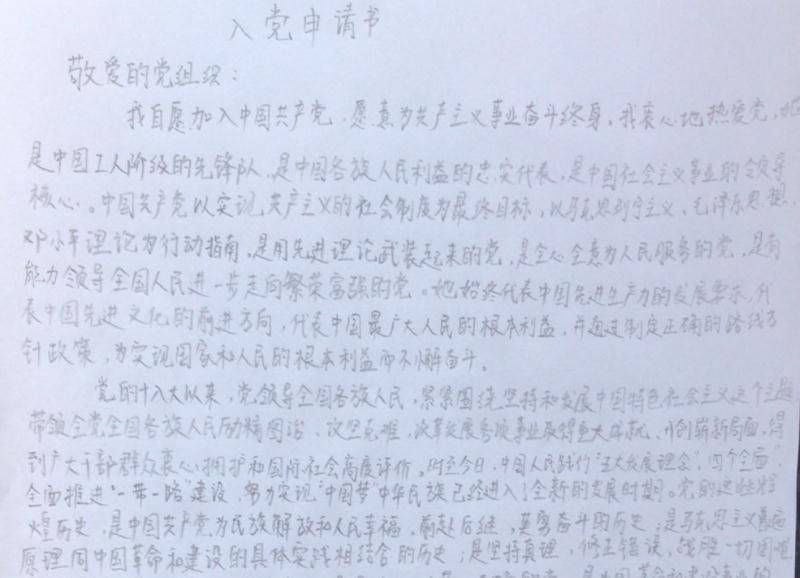 入党申请书
敬爱的党组织：
我自愿加入中国共产党，愿意为共产主义事业奋斗终身。我衷心地热爱党，她
是中国工人阶级的先锋队，是中国各族人民利益的忠实代表，是中国社会主义事业的领导
核心。中国共产党以实现共产主义的社会制度为最终目标，以马克思列宁主义、毛泽东思想、
邓小平理论为行动指南，是用先进理论武装起来的党，是全心全意为人民服务的党，是有
能力领导全国人民进一步走向繁荣富强的党。她始终代表中国先进生产力的发展要求，代
表中国先进文化的前进方向，代表中国最广大人民的根本利益，并通过制定正确的路线方
针政策，为实现国家和人民的根本利益而不懈奋斗。
党的十八大以来，党领导全国各族人民，紧紧围绕坚持和发展中国特色社会主义这个主题
带领全党全国各族人民励精图治、攻坚克难，改革发展各项事业取得巨大成就，开创崭新局面，得
到广大干部群众衷心拥护和国际社会高度评价。时至今日，中国人民践行"五大发展理念"，"四个全面"
全面推进"一带一路"建设，努力实现"中国梦"中华民族已经进入了全新的发展时期。党的这些辉
煌历史，是中国共产党为民族解放和人民幸福，前赴后继，英勇奋斗的历史；是马克思主义普遍
原理同中国革命和建设的具体实践相结合的历史；是坚持真理，修正错误，战胜一切困难